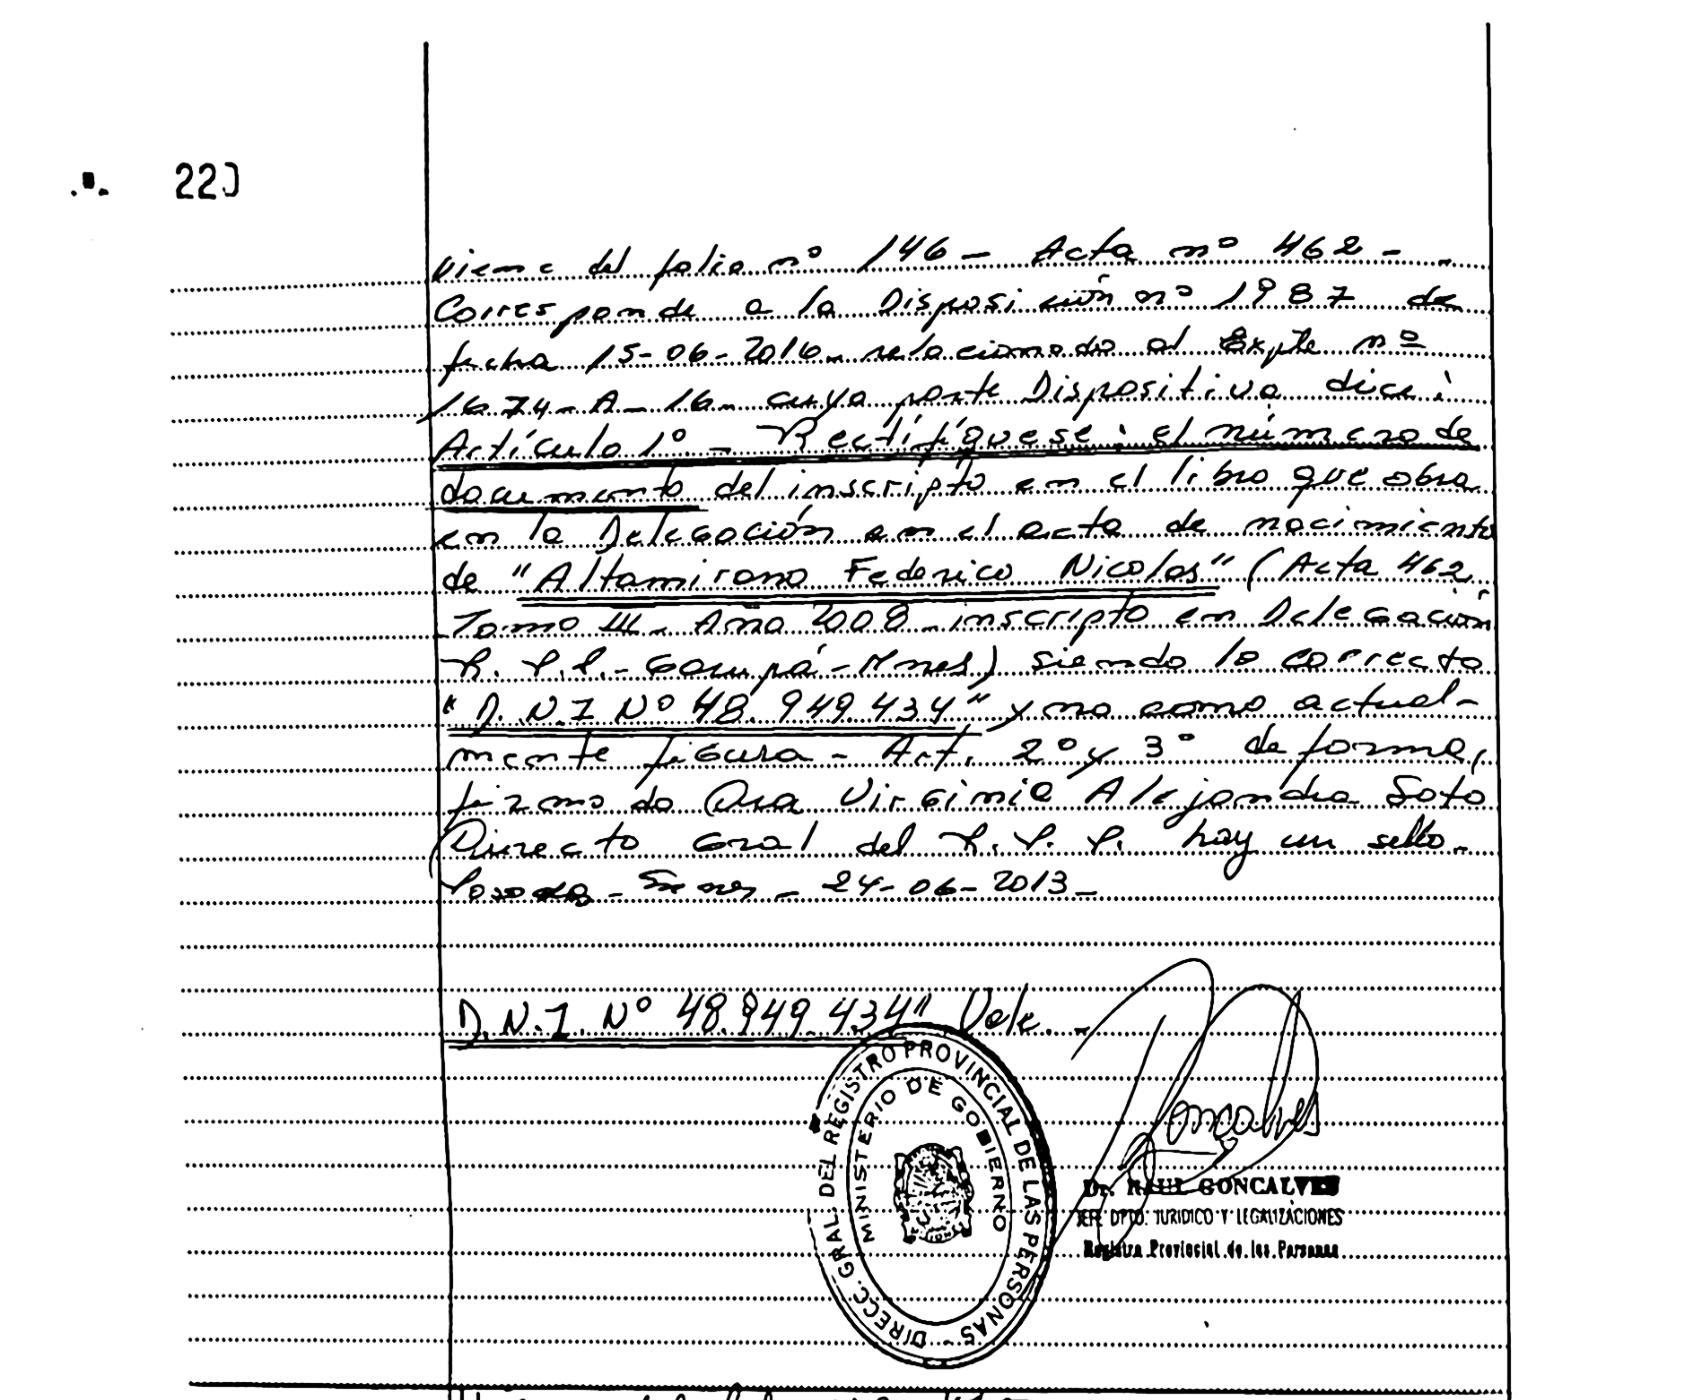 22)
Viene del folio nº 146 - Acta nº 462 -
Corresponde a la Disposición nº 1987 de
fecha 15-06-2016- relacionado al Expte nº
1674-A-16- cuya parte Dispositiva dice:
Artículo 1º - Rectifíquese: el número de
documento del inscripto en el libro que obra
en la Delegación en el acta de nacimiento
de "Altamirano Federico Nicolas" (Acta 462
Tomo III- Año 2008- inscripto en Delegación
R.P.P.- Garupá - Mnes) siendo lo correcto
"D.N.I Nº 48.949.434" y no como actual-
mente figura - Art. 2º y 3º de forma,
firmado Dra Virginia Alejandra Soto
Directo Gral del R.P.P. hay un sello-
Posadas - 24-06-2013-
D.N.I. Nº 48.949.434" Vale.-
Goncalves
DIRECC. GRAL. DEL REGISTRO PROVINCIAL DE LAS PERSONAS -
MINISTERIO DE GOBIERNO
Dr. RAUL GONCALVES
JEFE DPTO. JURIDICO Y LEGALIZACIONES
Registro Provincial de las Personas